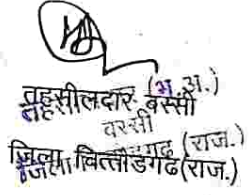 तहसीलदार (भू.अ.)
तहसीलदार बस्सी
वस्सी
जिला चित्तौडगढ (राज.)
जिला चित्तौडगढ (राज.)